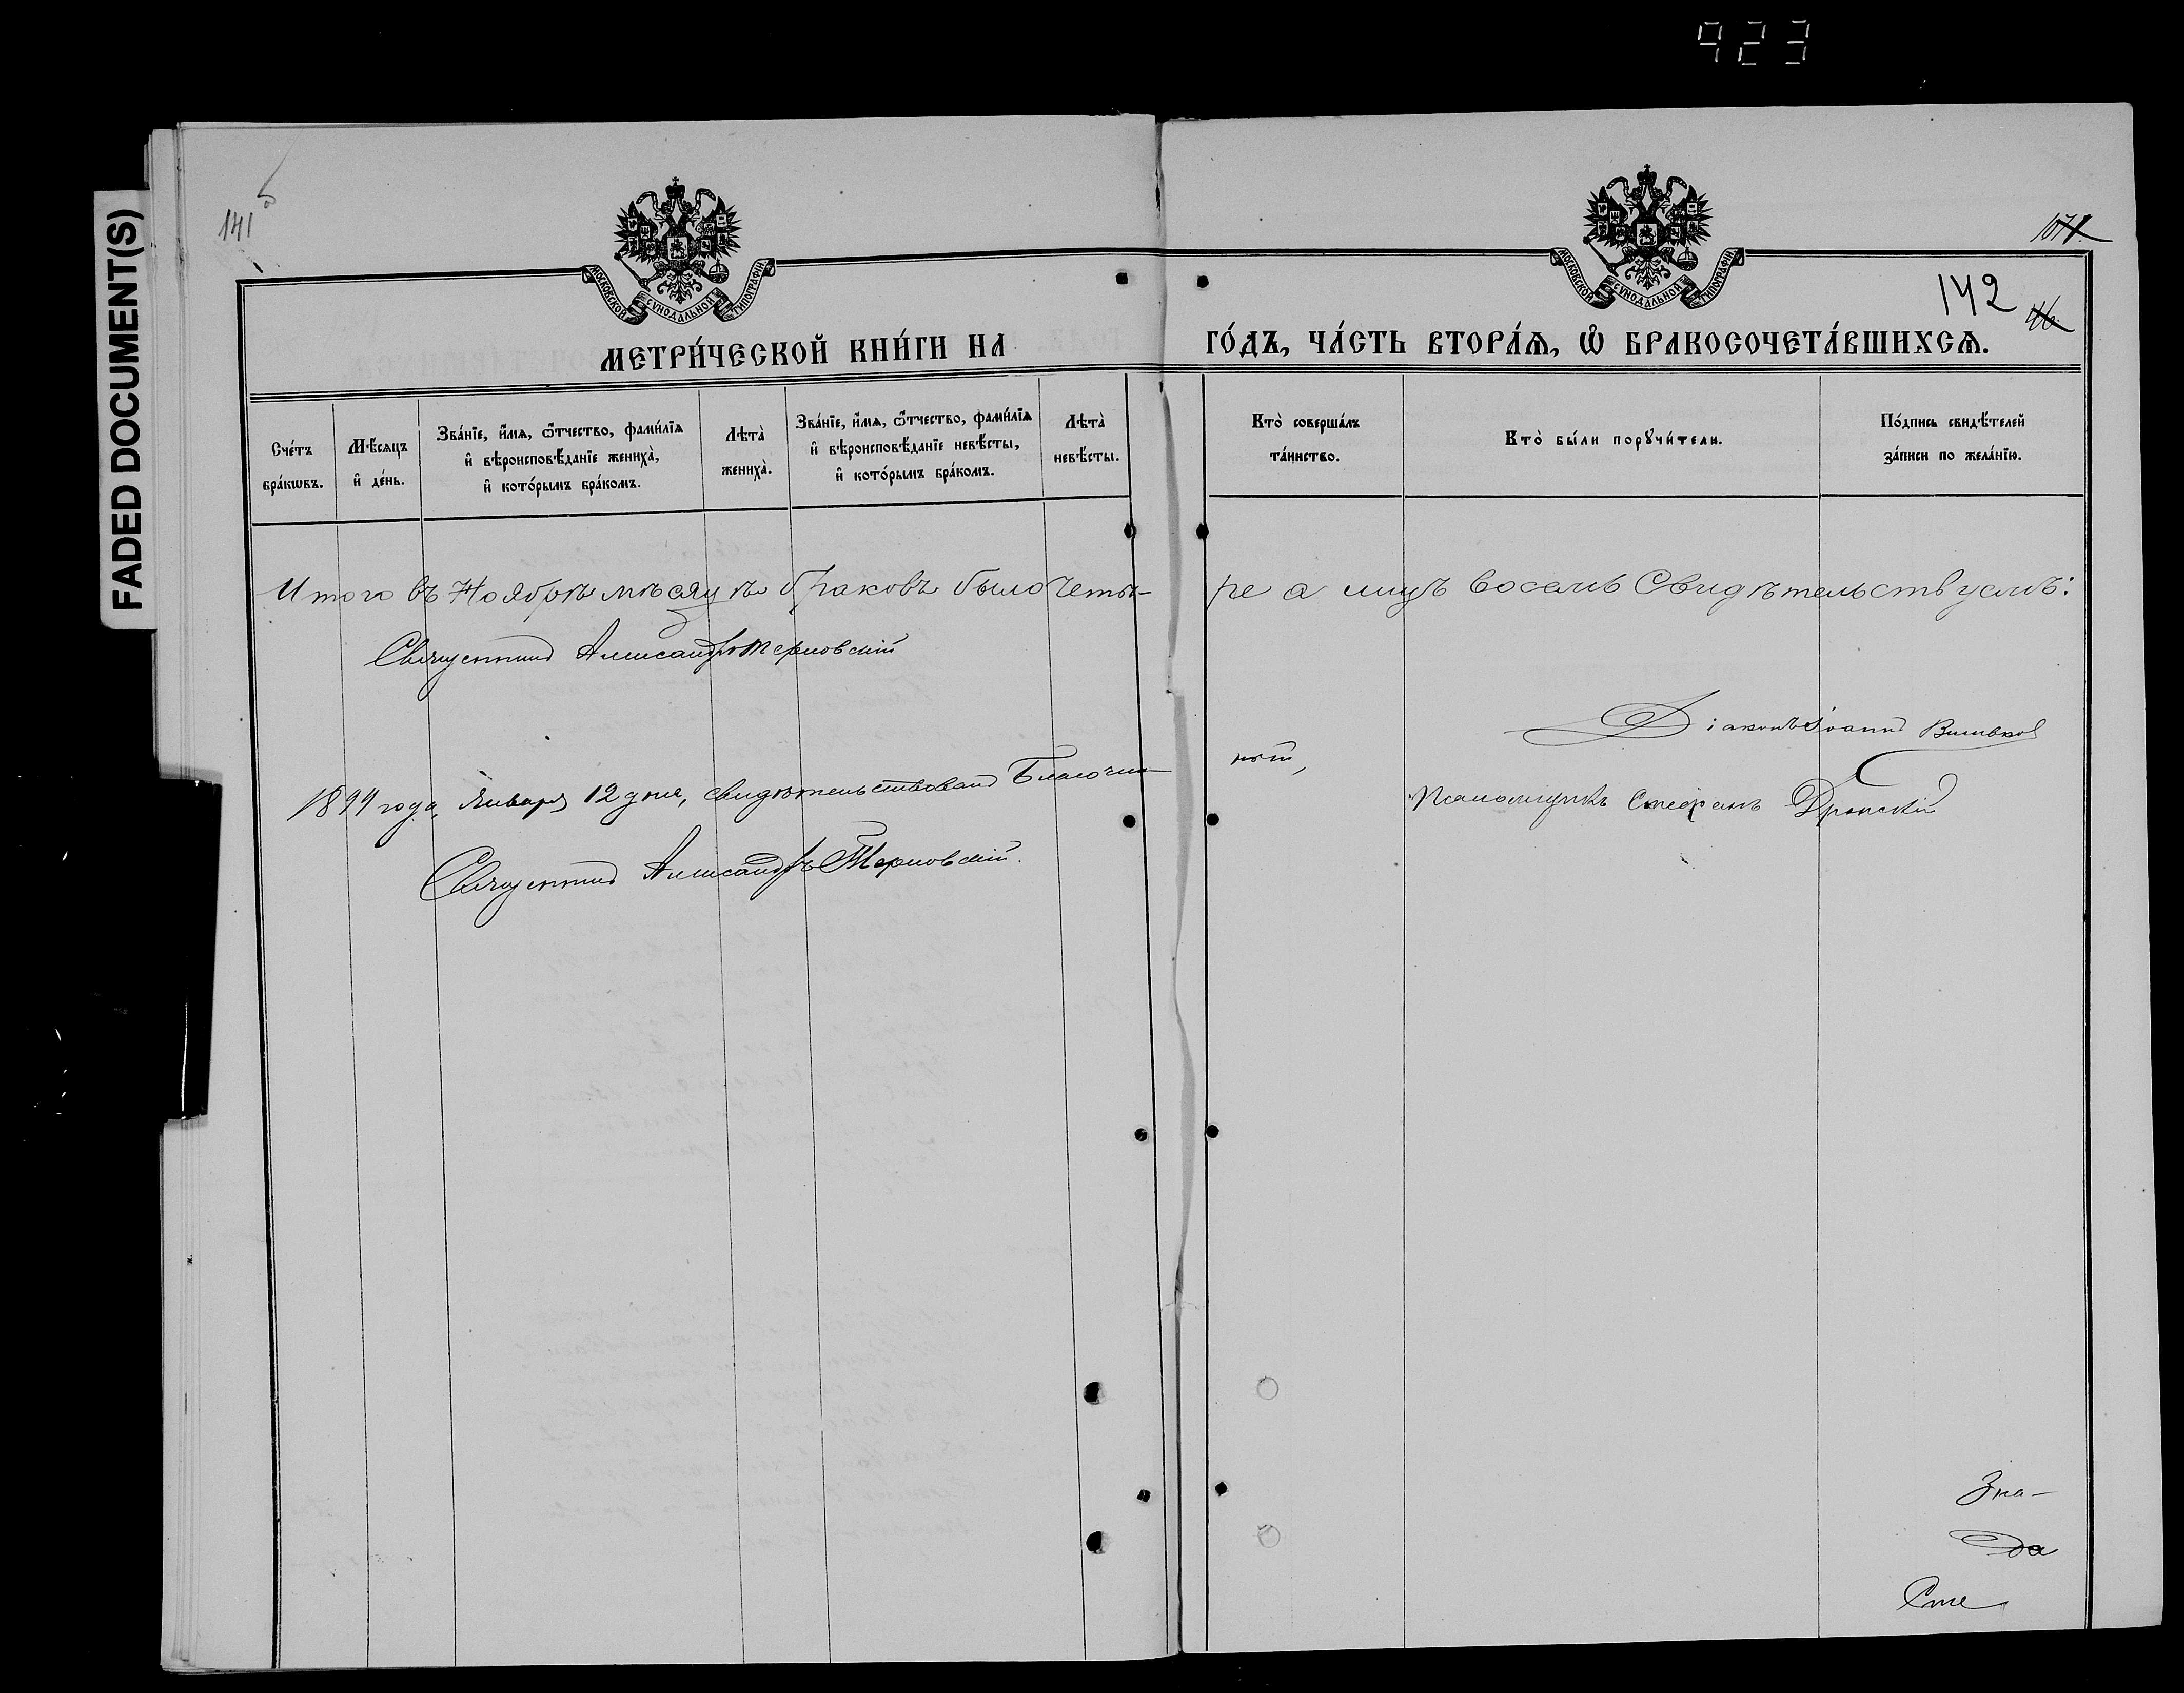 423
FADED DOCUMENT(S)
141 об
142
46
МОСКОВСКОЙ СѴНОДАЛЬНОЙ ТИПОГРАФІИ
МОСКОВСКОЙ СѴНОДАЛЬНОЙ ТИПОГРАФІИ
МЕТРИ́ЧЕСКОЙ КНИ́ГИ НА ГО́ДЪ, ЧА́СТЬ ВТОРА́Ѧ, Ѽ БРАКОСОЧЕТА́ВШИХСѦ.
Сче́тъ бра́кѡвъ.
Мѣ́сяцъ и҆ де́нь.
Зва́нїе, и҆́мѧ, ѻ҆́тчество, фами́лїѧ и҆ вѣроисповѣ́данїе жениха̀, и҆ кото́рымъ бра́комъ.
Лѣта̀ жениха̀.
Зва́нїе, и҆́мѧ, ѻ҆́тчество, фами́лїѧ и҆ вѣроисповѣ́данїе невѣ́сты, и҆ кото́рымъ бра́комъ.
Лѣта̀ невѣ́сты.
Кто̀ соверша́лъ та́инство.
Кто̀ бы́ли порꙋчи́тели.
По́дпись свидѣ́телей за́писи по жела́нїю.
Итого въ Ноябрѣ мѣсяцѣ браковъ было четы-ре а лицъ восемь Свидѣтельствуемъ:
Священникъ Александръ Терновскій
Діаконъ Іоаннъ
1894 года, Января 12 дня, свидѣтельствовалъ Благочин-ный,
Псаломщикъ Стефанъ
Священникъ Александръ Терновскій.
Зна-
да
Сте